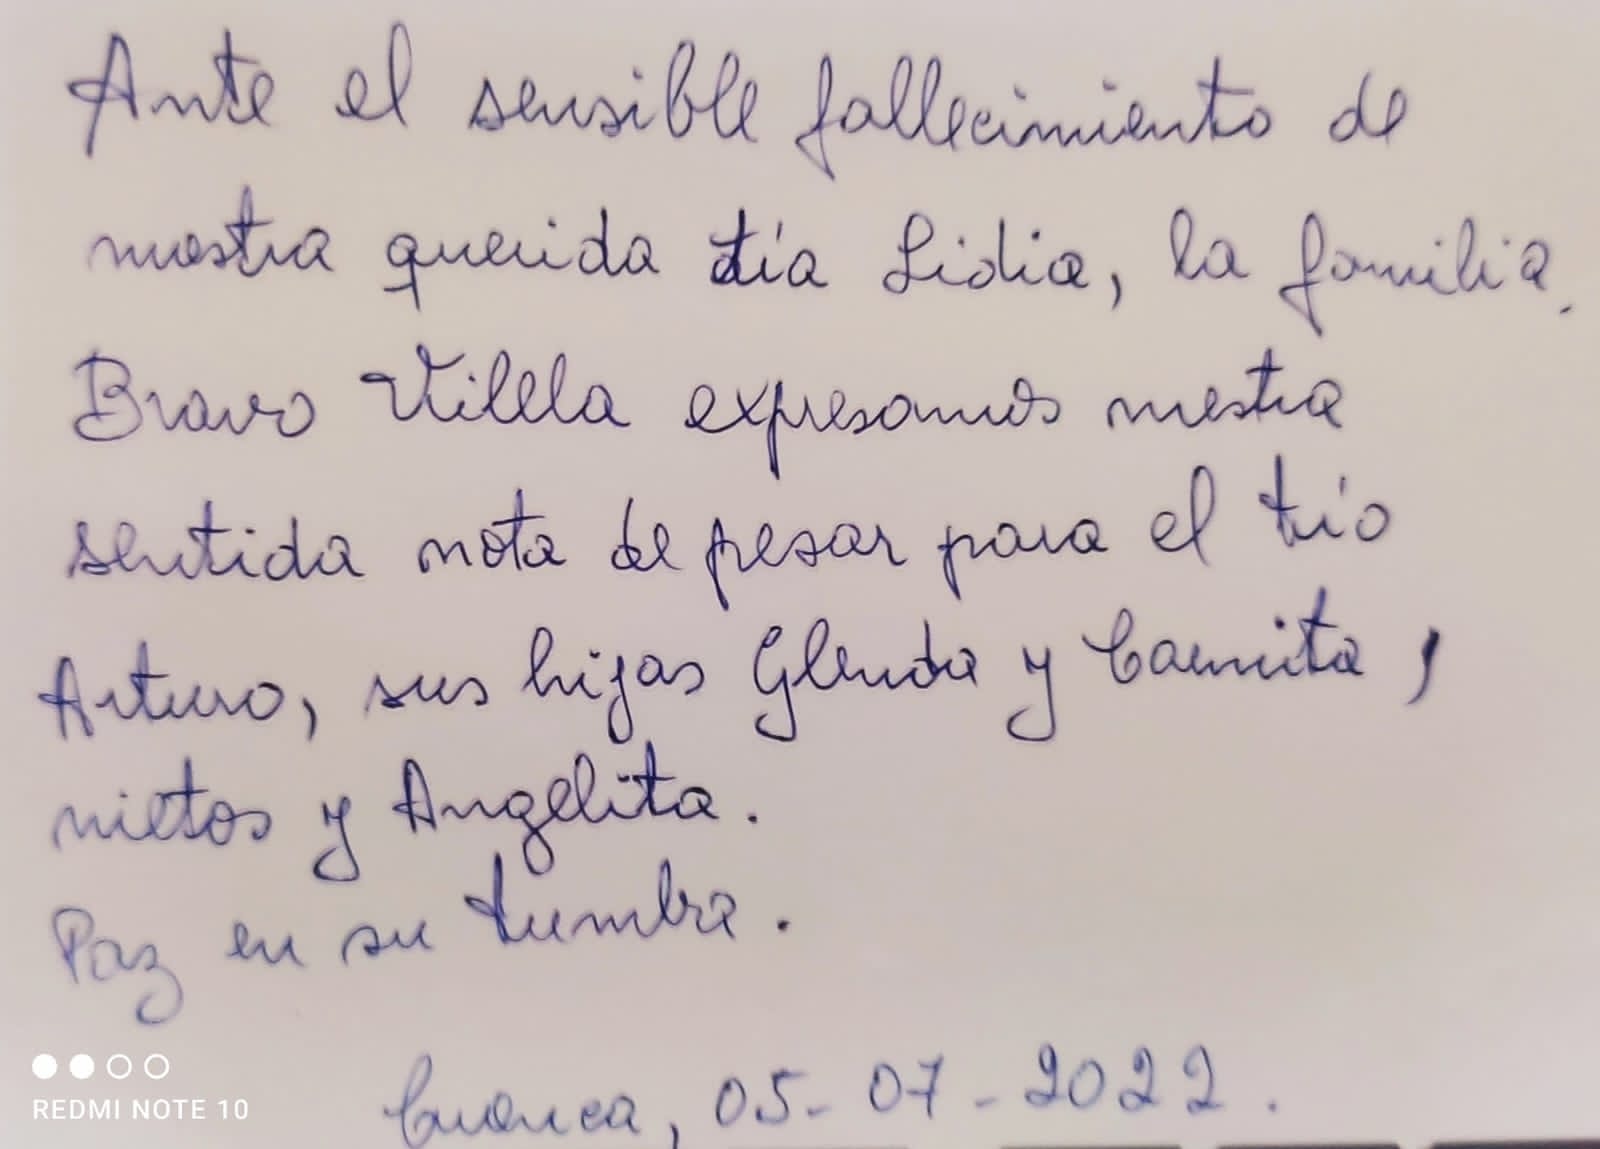 Ante el sensible fallecimiento de
nuestra querida tía Lidia, la familia.
Bravo Vilela expresamos nuestra
sentida nota de pesar para el tío
Arturo, sus hijas Glenda y Carmita,
nietos y Angelita.
Paz en su tumba.
Cuenca, 05-07-2022.
REDMI NOTE 10